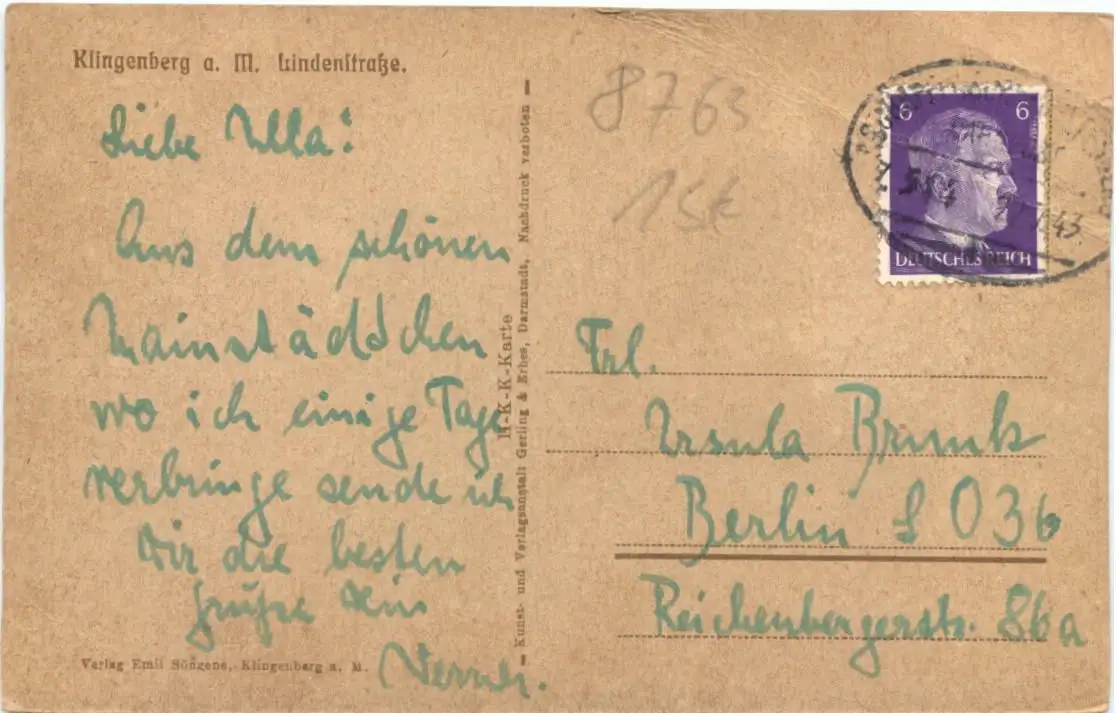 Klingenberg a. M. Lindenstraße.
Liebe Ulla!
Aus dem schönen
Mainstädtchen
wo ich einige Tage
verbringe sende ich
Dir die besten
Grüße Dein
Werner.
Verlag Emil Söngens, Klingenberg a. M.
H-K-K-Karte
Kunst- und Verlagsanstalt Gerling & Erbes, Darmstadt, Nachdruck verboten
8763
15t
6 6
DEUTSCHES REICH
43
Frl.
Ursula Brunk
Berlin SO 36
Reichenbergerstr. 86a